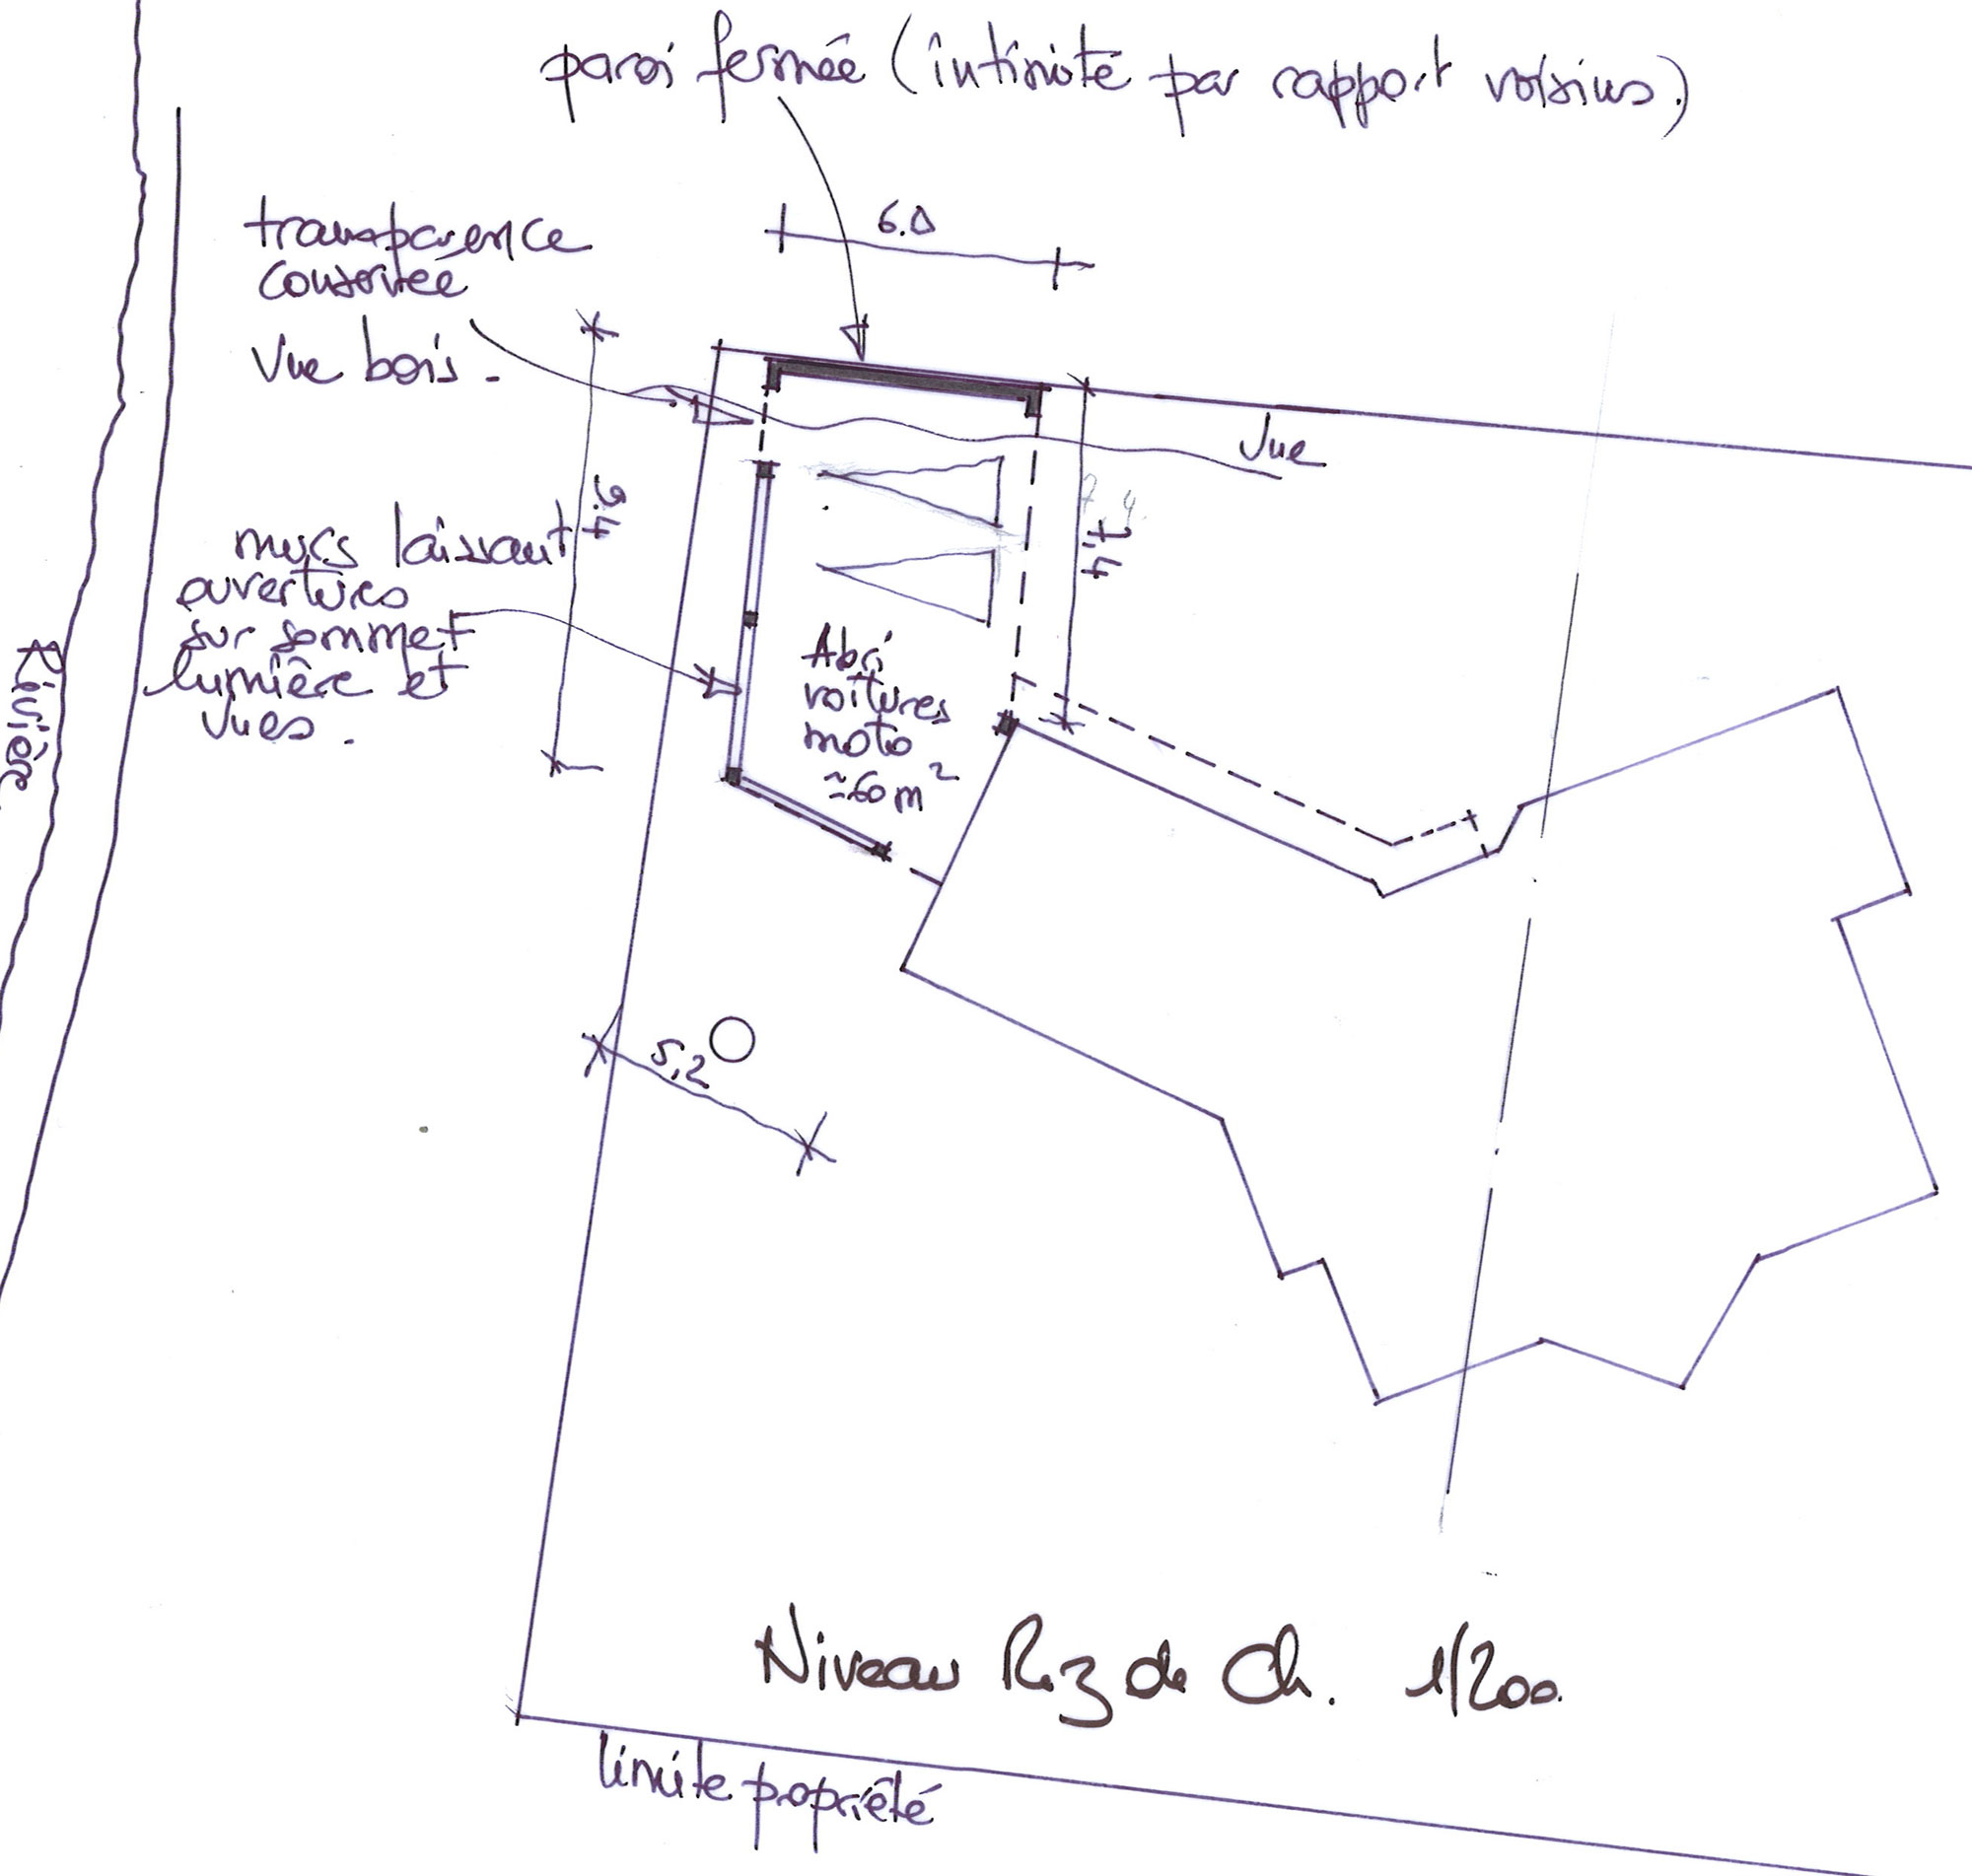 paroi fermée (intimité par rapport voisins.)
transparence
conservée
Vue bois.
6.0
Vue
murs laissant
ouvertures
sur sommet
lumière et
vues.
Rivière
Abri
voitures
moto
≃60 m²
5,2
Niveau Rez de Ch. 1/200.
limite propriété